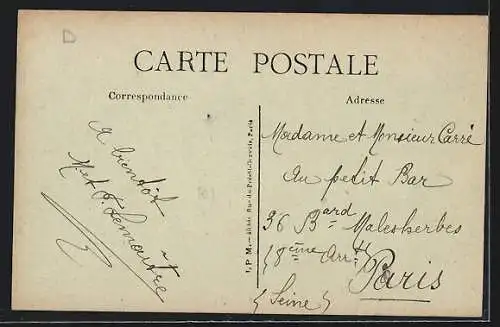 D
CARTE POSTALE
Correspondance
Adresse
A bientôt
M et P. Lemaitre
I. P. M. — 
Paris
Madame et Monsieur Carré
Au petit Bar
36 Bard Malesherbes
(8ème Arrt)
Paris
(Seine)